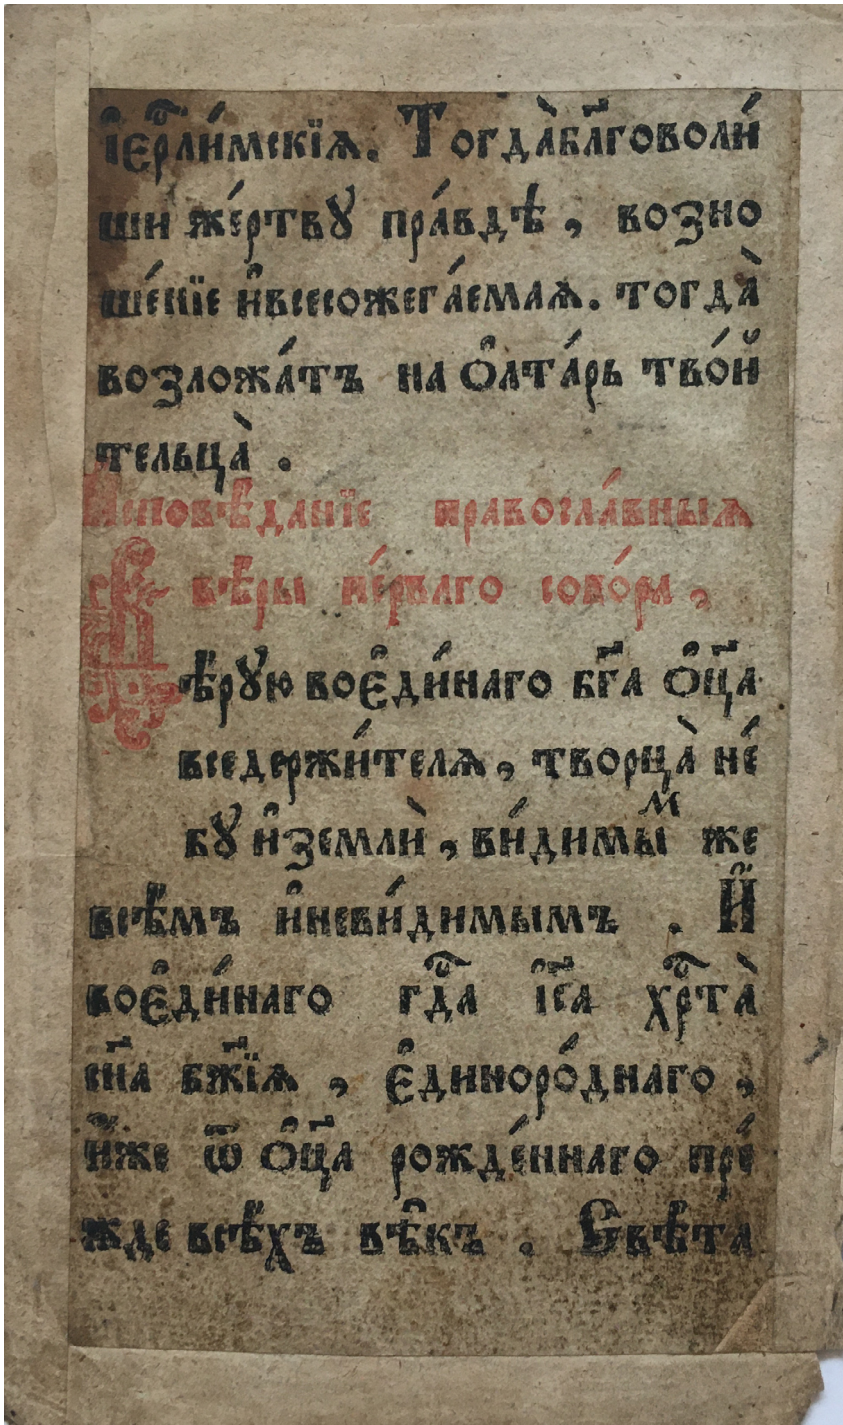 і҆ер҇ли́мскїѧ. Тогда̀бл҃говоли́
ши же́ртву пра́вдѣ, возно
ше́нїе и҆всесожега́емаѧ. тогда̀
возложа́тъ на ѻ҆лта́рь тво́й
тельца̀.
Исповѣ́данїе правосла́вныѧ
вѣ́ры пе́рваго собо́ра,
Вѣ́рꙋю воє҆ди́наго бг҃а ѻ҆ц҃а
вседержи́телѧ, творца̀ не́
бꙋ и҆землѝ, ви́димыⷨ же
всѣ́мъ и҆неви́димымъ. И҆
воє҆ди́наго гдⷭ҇а і҆с҃а хрⷭ҇та̀
сн҃а бж҃їѧ, є҆диноро́днаго,
и҆́же ѿ ѻ҆ц҃а рожде́ннаго пре́
жде всѣ́хъ вѣ҆къ. Свѣ́та